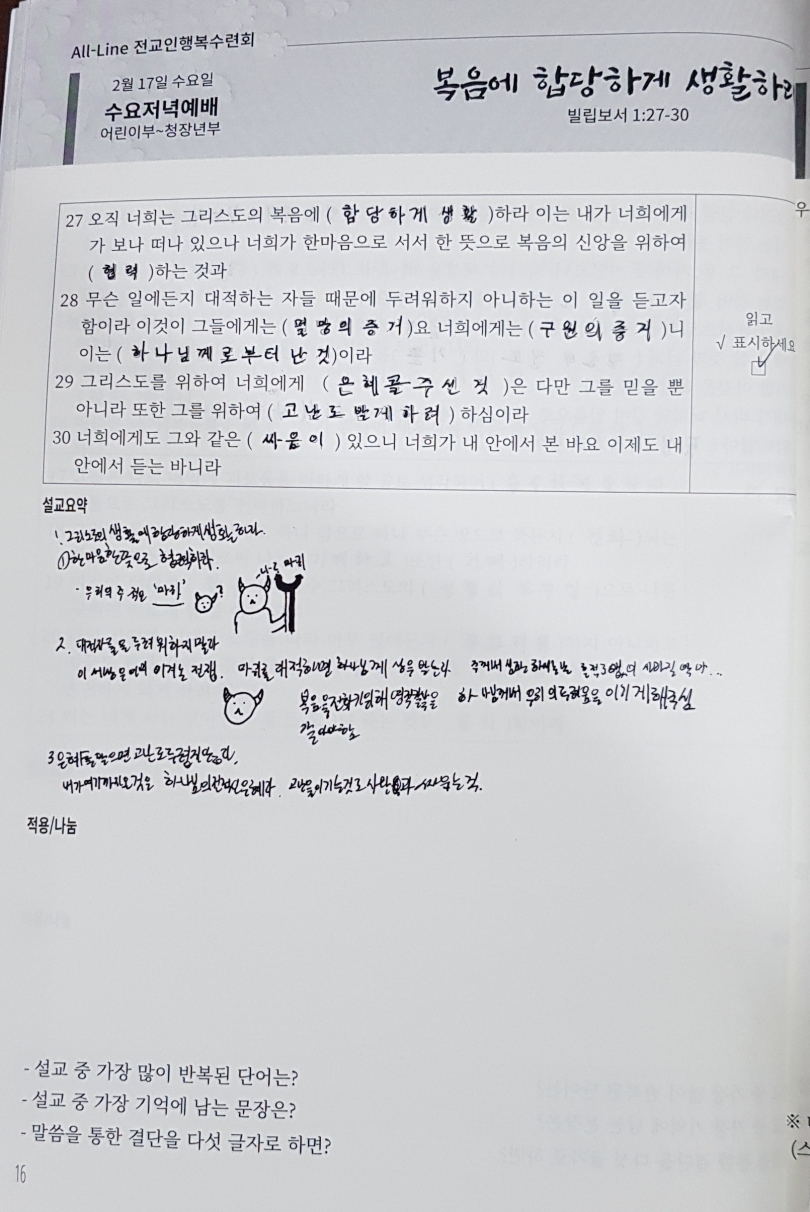 All-Line 전교인행복수련회
2월 17일 수요일
수요저녁예배
어린이부~청장년부
복음에 합당하게 생활하라
빌립보서 1:27-30
27 오직 너희는 그리스도의 복음에 ( 합당하게 생활 )하라 이는 내가 너희에게
가 보나 떠나 있으나 너희가 한마음으로 서서 한 뜻으로 복음의 신앙을 위하여
( 협력 )하는 것과
28 무슨 일에든지 대적하는 자들 때문에 두려워하지 아니하는 이 일을 듣고자
함이라 이것이 그들에게는 ( 멸망의 증거 )요 너희에게는 ( 구원의 증거 )니
이는 ( 하나님께로부터 난 것)이라
29 그리스도를 위하여 너희에게 ( 은혜를 주신 것 )은 다만 그를 믿을 뿐
아니라 또한 그를 위하여 ( 고난도 받게 하려 ) 하심이라
30 너희에게도 그와 같은 ( 싸움이 ) 있으니 너희가 내 안에서 본 바요 이제도 내
안에서 듣는 바니라
읽고
√ 표시하세요
우
설교요약
1. 그리스도의 생활에 합당하게 생활하라.
① 한마음 한뜻으로 협력하라.
- 우리의 주적은 '마귀' ?
나는 마귀
2. 대적자들을 두려워하지말라
이 세상은 이미 이겨놓은 전쟁. 마귀를 대적하면 하나님께 상을 받는다
복음을 전하기위해 영적칼날을
갈아야함
하나님께서 우리의 두려움을 이기게해주심
3 은혜를 받으면 고난도 두렵지않다.
내가 여기까지온것은 하나님의 전적인 은혜다. 고난을 이기는것도 사탄과 싸우는것.
적용/나눔
- 설교 중 가장 많이 반복된 단어는?
- 설교 중 가장 기억에 남는 문장은?
- 말씀을 통한 결단을 다섯 글자로 하면?
※
(스
16